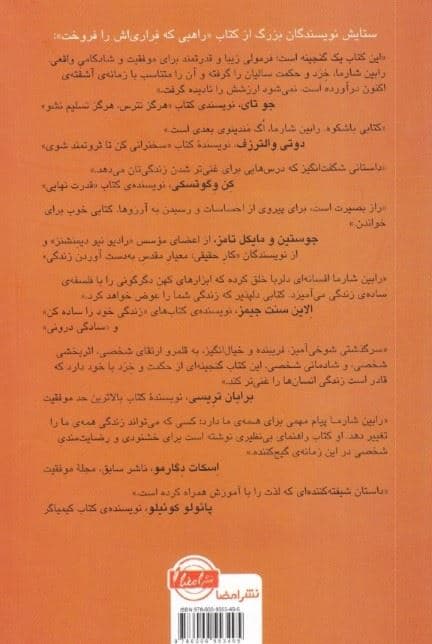 ستایش نویسندگان بزرگ از کتاب «راهبی که فراری‌اش را فروخت»:
«این کتاب یک گنجینه است: فرمولی زیبا و قدرتمند برای موفقیت و شادکامی واقعی.
رابین شارما، خرد و حکمت سالیان را گرفته و آن را متناسب با زمانه‌ی آشفته‌ی
اکنون درآورده است. نمی‌شود ارزشش را نادیده گرفت.»
جو تای، نویسنده‌ی کتاب «هرگز نترس، هرگز تسلیم نشو»
«کتابی باشکوه. رابین شارما، اُگ مَندینوی بعدی است.»
دوتی والترزف، نویسندهٔ کتاب «سخنرانی کن تا ثروتمند شوی»
«داستانی شگفت‌انگیز که درس‌هایی برای غنی‌تر شدن زندگی‌تان می‌دهد.»
کن وگوتسکی، نویسنده‌ی کتاب «قدرت نهایی»
«راز بصیرت است، برای پیروی از احساسات و رسیدن به آرزوها. کتابی خوب برای
خواندن.»
جوستین و مایکل تامز، از اعضای مؤسس «رادیو نیو دیمنشنز» و
از نویسندگان «کار حقیقی: معیار مقدس به‌دست آوردن زندگی»
«رابین شارما افسانه‌ای دلربا خلق کرده که ابزارهای کهن دگرگونی را با فلسفه‌ی
ساده‌ی زندگی می‌آمیزد. کتابی دلپذیر که زندگی شما را عوض خواهد کرد.»
الاین سنت جیمز، نویسنده‌ی کتاب‌های «زندگی خود را ساده کن»
و «سادگی درونی»
«سرگذشتی شوخی‌آمیز، فریبنده و خیال‌انگیز، به قلمرو ارتقای شخصی، اثربخشی
شخصی، و شادمانی شخصی. این کتاب گنجینه‌ای از حکمت و خرد با خود دارد که
قادر است زندگی انسان‌ها را غنی‌تر کند.»
برایان تریسی، نویسندهٔ کتاب بالاترین حد موفقیت
«رابین شارما پیام مهمی برای همه‌ی ما دارد؛ کسی که می‌تواند زندگی همه‌ی ما را
تغییر دهد. او کتاب راهنمای بی‌نظیری نوشته است برای خشنودی و رضایت‌مندی
شخصی در این زمانه‌ی گیج‌کننده.»
اسکات دگارمو، ناشر سابق، مجلهٔ موفقیت
«داستان شیفته‌کننده‌ای که لذت را با آموزش همراه کرده است.»
پائولو کوئیلو، نویسنده‌ی کتاب کیمیاگر
نشر امضا
نشر امضا